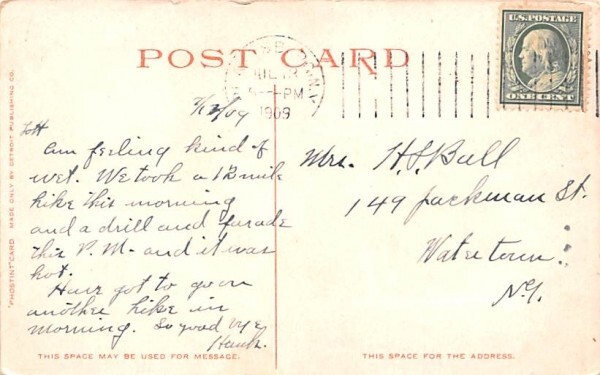 POST CARD
U.S. POSTAGE
ONE CENT
JUL 13
5-PM
1909
7/13/09
am feeling kind of
wet. We took a 12 mile
hike this morning
and a drill and parade
this P.M. and it was
hot.
Have got to go on
another hike in
morning. So good bye
Mrs. H. S. Ball
149 Packman St.
Watertown
N.Y.
"PHOSTINT" CARD MADE ONLY BY DETROIT PUBLISHING CO.
THIS SPACE MAY BE USED FOR MESSAGE.
THIS SPACE FOR THE ADDRESS.